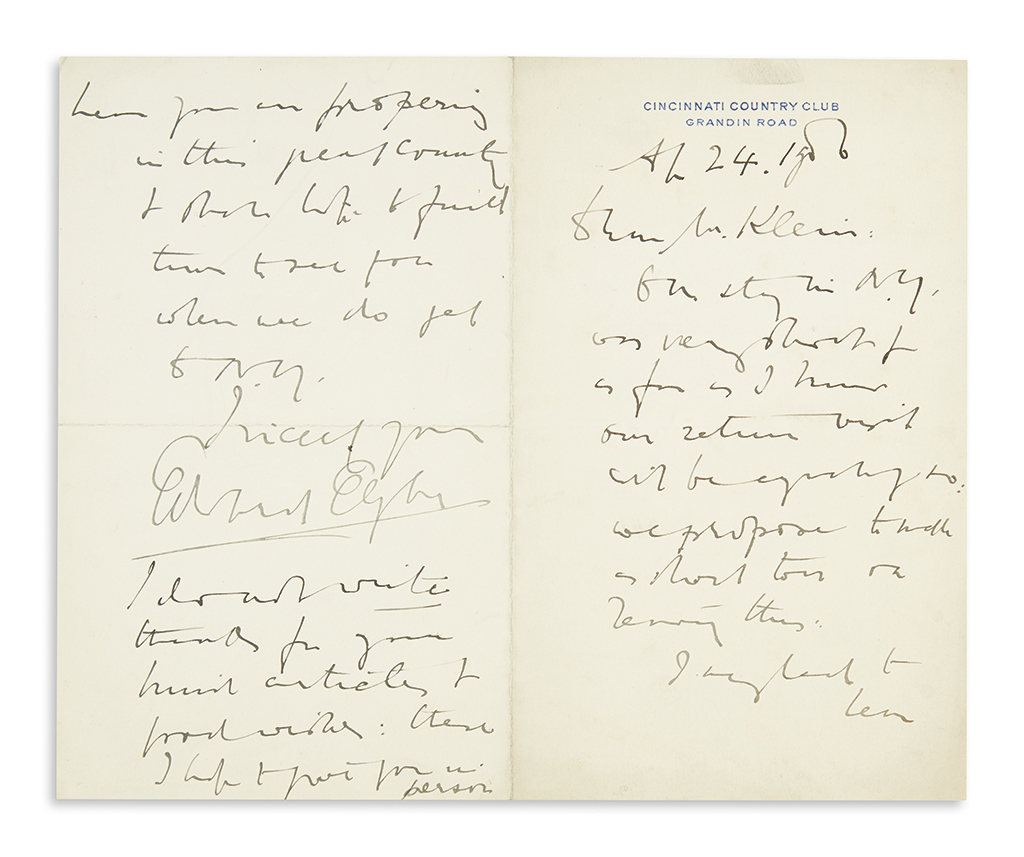 CINCINNATI COUNTRY CLUB
GRANDIN ROAD
Ap 24. 1906
Dear Mr. Klein:
Our stay in N.Y.
was very short &
as far as I know
our return visit
will be equally so:
we propose to make
a short tour on
leaving this.
I am glad to
hear
hear you are prospering
in this great country
& shall hope to find
time to see you
when we do get
to N.Y.
Sincerely yours
Edward Elgar
I do not write
thanks for your
kind articles &
good wishes: these
I hope to give you in
person